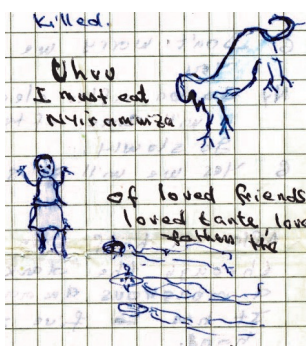 Killed.
Uhuu
I must eat
Nyiramwiza
of loved friends
loved tante love
fathers